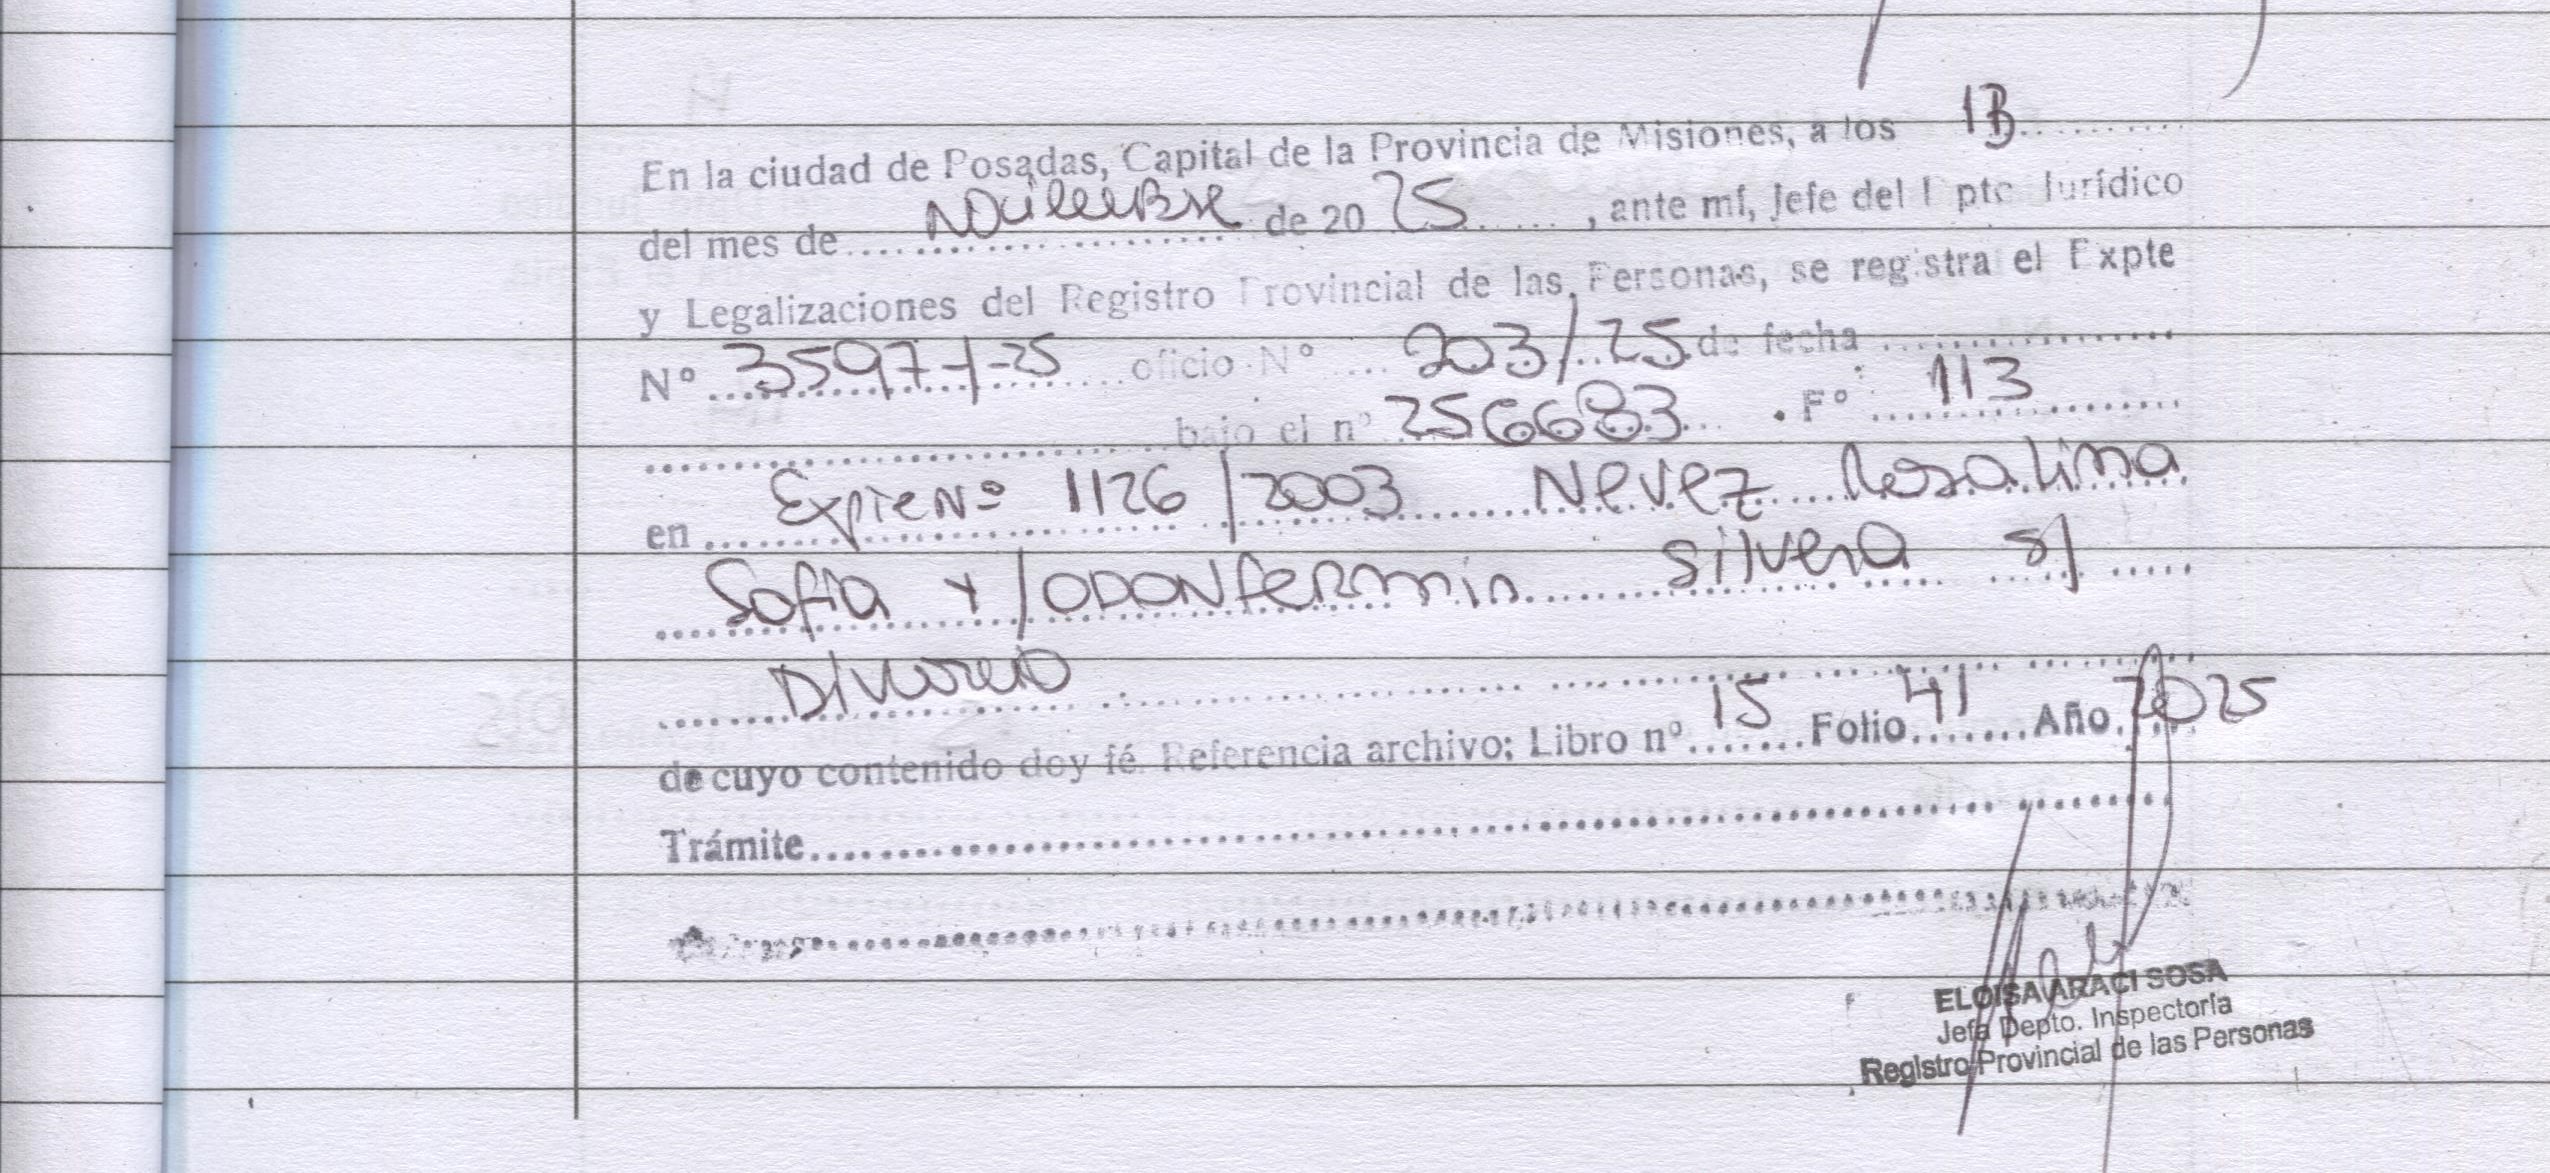 En la ciudad de Posadas, Capital de la Provincia de Misiones, a los 13
del mes de Noviembre de 2025, ante mí, Jefe del Dpto Jurídico
y Legalizaciones del Registro Provincial de las Personas, se registra el Expte
Nº 3597-/-25 oficio Nº 203/25 de fecha
bajo el nº 256683. Fº 113
en Expte Nº 1126/2003 Nevez Rosalina
Sofia y/o DON fermin Silvera s/
Divorcio
de cuyo contenido doy fé. Referencia archivo; Libro nº 15 Folio 41 Año 2025
Trámite
ELOISA ARACI SOSA
Jefa Depto. Inspectoría
Registro Provincial de las Personas